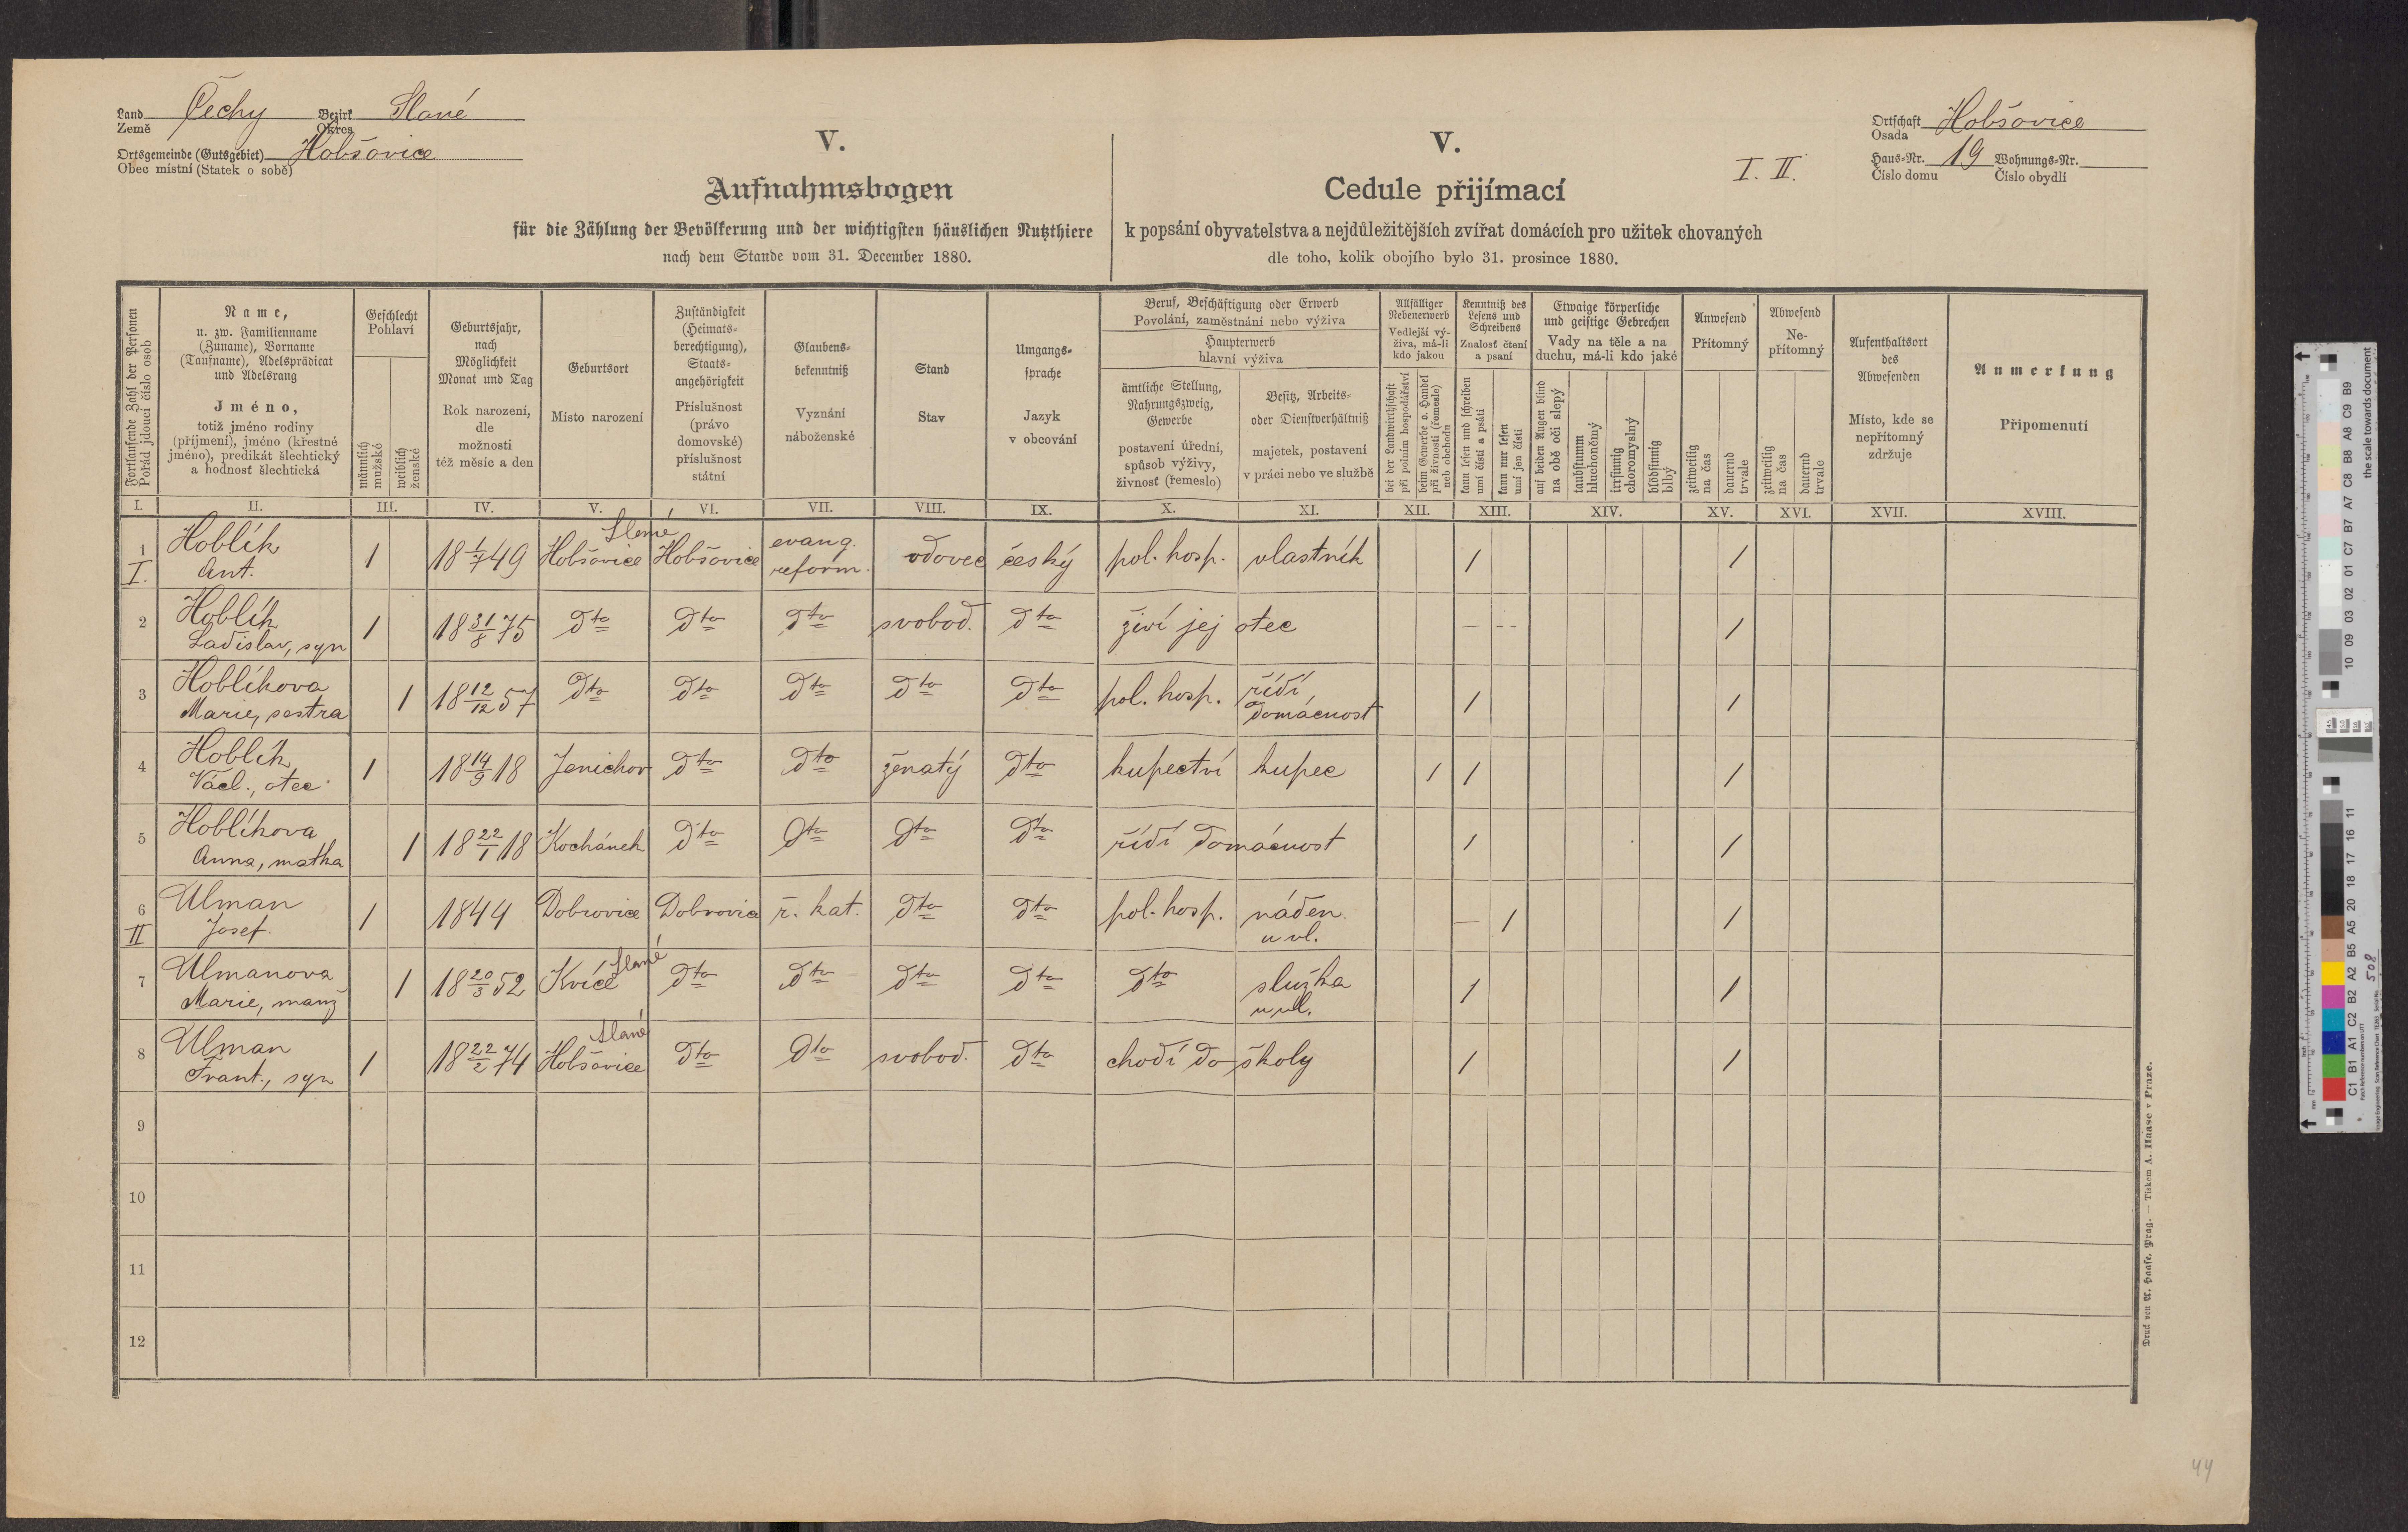 Land Čechy Bezirk Slané
Země Okres
Ortsgemeinde (Gutsgebiet) Hobšovice
Obec místní (Statek o sobě)
Ortschaft Hobšovice
Osada
Haus-Nr. 19 Wohnungs-Nr.
Číslo domu Číslo obydlí
V.
Aufnahmsbogen
für die Zählung der Bevölkerung und der wichtigsten häuslichen Nutzthiere
nach dem Stande vom 31. December 1880.
V.
I. II.
Cedule přijímací
k popsání obyvatelstva a nejdůležitějších zvířat domácích pro užitek chovaných
dle toho, kolik obojího bylo 31. prosince 1880.
Fortlaufende Zahl der Personen
Pořád jdoucí číslo osob
Name,
u. zw. Familienname
(Zuname), Vorname
(Taufname), Adelsprädicat
und Adelsrang
Jméno,
totiž jméno rodiny
(příjmení), jméno (křestné
jméno), predikát šlechtický
a hodnosť šlechtická
Geschlecht
Pohlaví
männlich
mužské
weiblich
ženské
Geburtsjahr,
nach
Möglichkeit
Monat und Tag
Rok narození,
dle
možnosti
též měsíc a den
Geburtsort
Místo narození
Zuständigkeit
(Heimats-
berechtigung),
Staats-
angehörigkeit
Příslušnost
(právo
domovské)
příslušnost
státní
Glaubens-
bekenntniß
Vyznání
náboženské
Stand
Stav
Umgangs-
sprache
Jazyk
v obcování
Beruf, Beschäftigung oder Erwerb
Povolání, zaměstnání nebo výživa
Haupterwerb
hlavní výživa
ämtliche Stellung,
Nahrungszweig,
Gewerbe
postavení úřední,
spůsob výživy,
živnosť (řemeslo)
Besitz, Arbeits-
oder Dienstverhältniß
majetek, postavení
v práci nebo ve službě
Allfälliger
Nebenerwerb
Vedlejší vý-
živa, má-li
kdo jakou
bei der Landwirthschaft
při polním hospodářství
beim Gewerbe o. Handel
při živnosti (řemesle)
neb obchodu
Kenntniß des
Lesens und
Schreibens
Znalosť čtení
a psaní
kann lesen und schreiben
umí čísti a psáti
kann nur lesen
umí jen čísti
Etwaige körperliche
und geistige Gebrechen
Vady na těle a na
duchu, má-li kdo jaké
auf beiden Augen blind
na obě oči slepý
taubstumm
hluchoněmý
irrsinnig
choromyslný
blödsinnig
blbý
Anwesend
Přítomný
zeitweilig
na čas
dauernd
trvale
Abwesend
Ne-
přítomný
zeitweilig
na čas
dauernd
trvale
Aufenthaltsort
des
Abwesenden
Místo, kde se
nepřítomný
zdržuje
Anmerkung
Připomenutí
I. II. III. IV. V. VI. VII. VIII. IX. X. XI. XII. XIII. XIV. XV. XVI. XVII. XVIII.
1 Hoblík 1 18 1/7 49 Hobšovice Slané Hobšovice evang. vdovec český pol. hosp. vlastník 1 1
I. Ant. reform.
2 Hoblík 1 18 31/8 75 dto dto dto svobod. dto živí jej otec — -- 1
Ladislav, syn
3 Hoblíkova 1 18 12/12 57 dto dto dto dto dto pol. hosp. řídí 1 1
Marie, sestra domácnost
4 Hoblík 1 18 14/9 18 Jenichov dto dto ženatý dto kupectví kupec 1 1 1
Václ., otec
5 Hoblíkova 1 18 22/1 18 Kochánek dto dto dto dto řídí domácnost 1 1
Anna, matka
6 Ulman 1 1844 Dobrovice Dobrovice ř. kat. dto dto pol. hosp. náden. — 1 1
II Josef. u vl.
7 Ulmanova 1 18 20/3 52 Kvíce Slané dto dto dto dto dto služka 1 1
Marie, manž u vl.
8 Ulman 1 18 22/2 74 Hobšovice Slané dto dto svobod. dto chodí do školy 1 1
Frant., syn
9
10
11
12
Druck von A. Haase, Prag. — Tiskem A. Haase v Praze.
44
the scale towards document
C1 B1 A1 C2 B2 A2 B5 A5 20 18 17 16 11
10 09 03 02 01 C7 B7 A7 C8 B8 A8 C9 B9
508